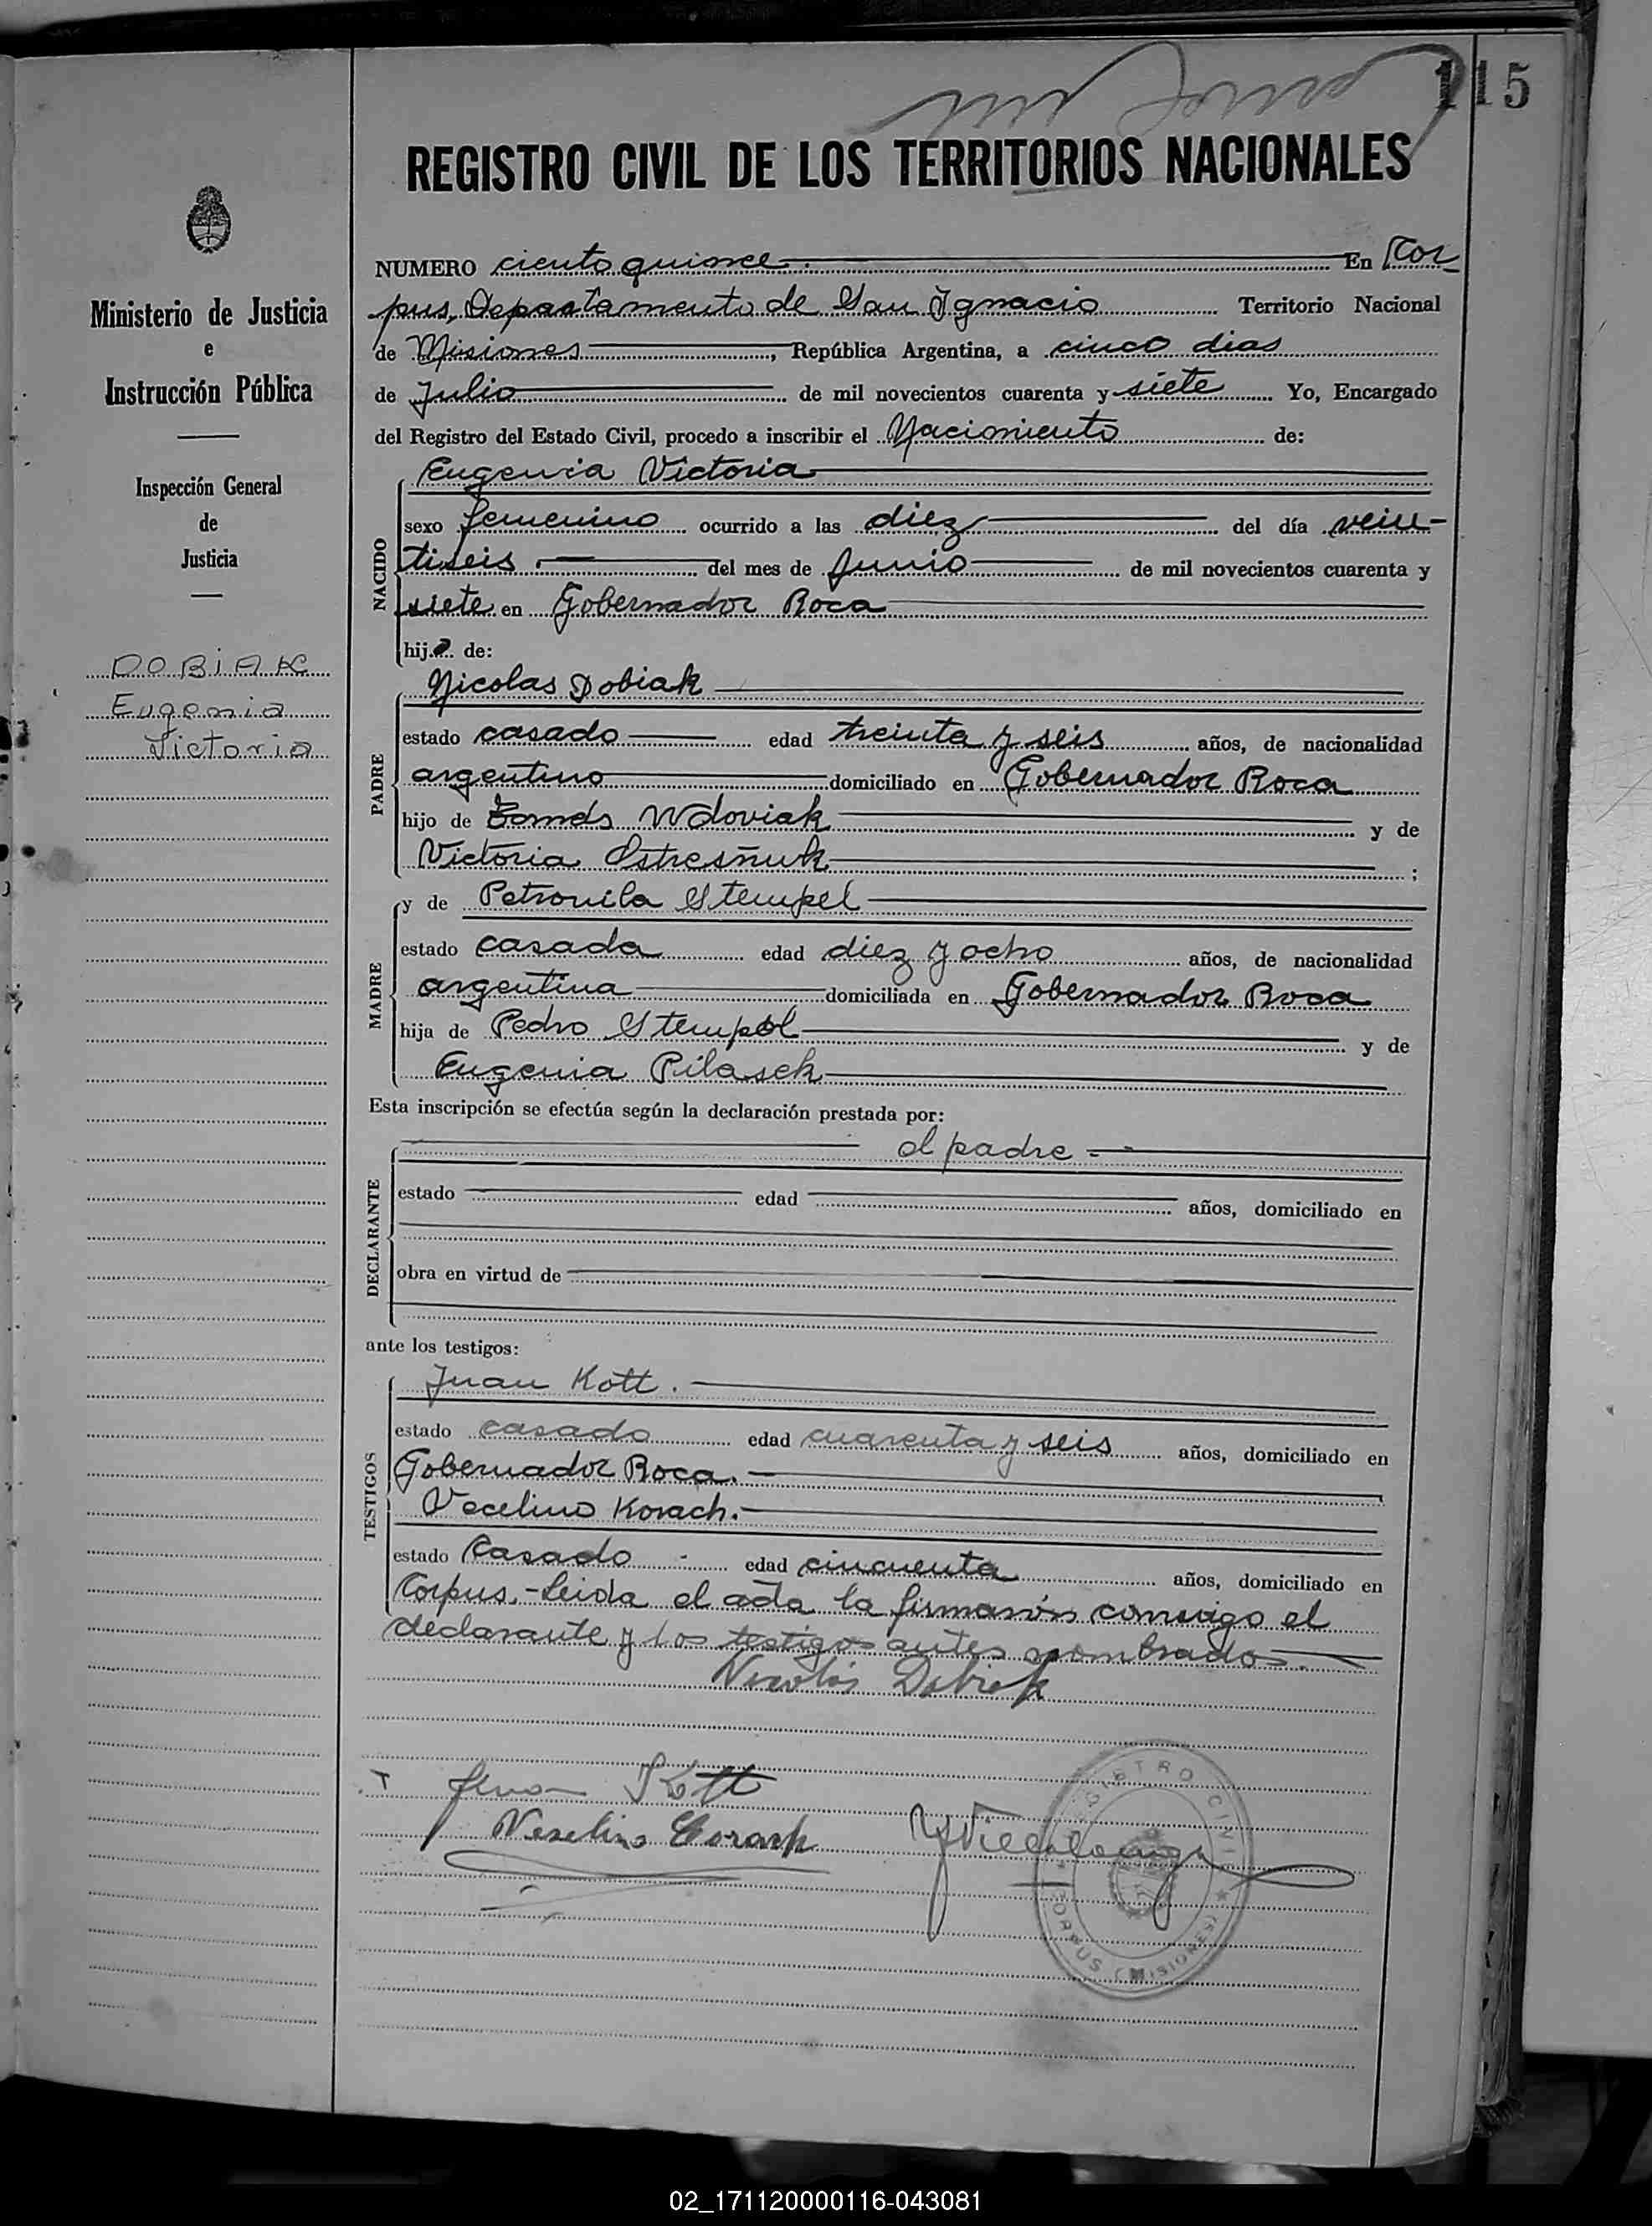 115
REGISTRO CIVIL DE LOS TERRITORIOS NACIONALES
Ministerio de Justicia
e
Instrucción Pública
Inspección General
de
Justicia
DOBIAK
Eugenia
Victoria
NUMERO ciento quince En Cor-
pus, Departamento de San Ignacio Territorio Nacional
de Misiones, República Argentina, a cinco dias
de Julio de mil novecientos cuarenta y siete Yo, Encargado
del Registro del Estado Civil, procedo a inscribir el Nacimiento de:
NACIDO
Eugenia Victoria
sexo femenino ocurrido a las diez del día vein-
tiseis del mes de Junio de mil novecientos cuarenta y
siete en Gobernador Roca
hija de:
PADRE
Nicolas Dobiak
estado casado edad treinta y seis años, de nacionalidad
argentino domiciliado en Gobernador Roca
hijo de Tomás Wdoviak y de
Victoria Ostresñuk;
MADRE
y de Petronila Stempel
estado casada edad diez y ocho años, de nacionalidad
argentina domiciliada en Gobernador Roca
hija de Pedro Stempel y de
Eugenia Pilasek
Esta inscripción se efectúa según la declaración prestada por:
DECLARANTE
el padre
estado edad años, domiciliado en
obra en virtud de
ante los testigos:
TESTIGOS
Juan Kott.
estado casado edad cuarenta y seis años, domiciliado en
Gobernador Roca.
Vecelino Korach.
estado Casado edad cincuenta años, domiciliado en
Corpus.- Leida el acta la firmarón conmigo el
declarante y los testigos antes nombrados.
Nicolás Dobiak
Juan Kott
Veselino Corach
YVillalonga
REGISTRO CIVIL
CORPUS (MISIONES)
02_171120000116-043081